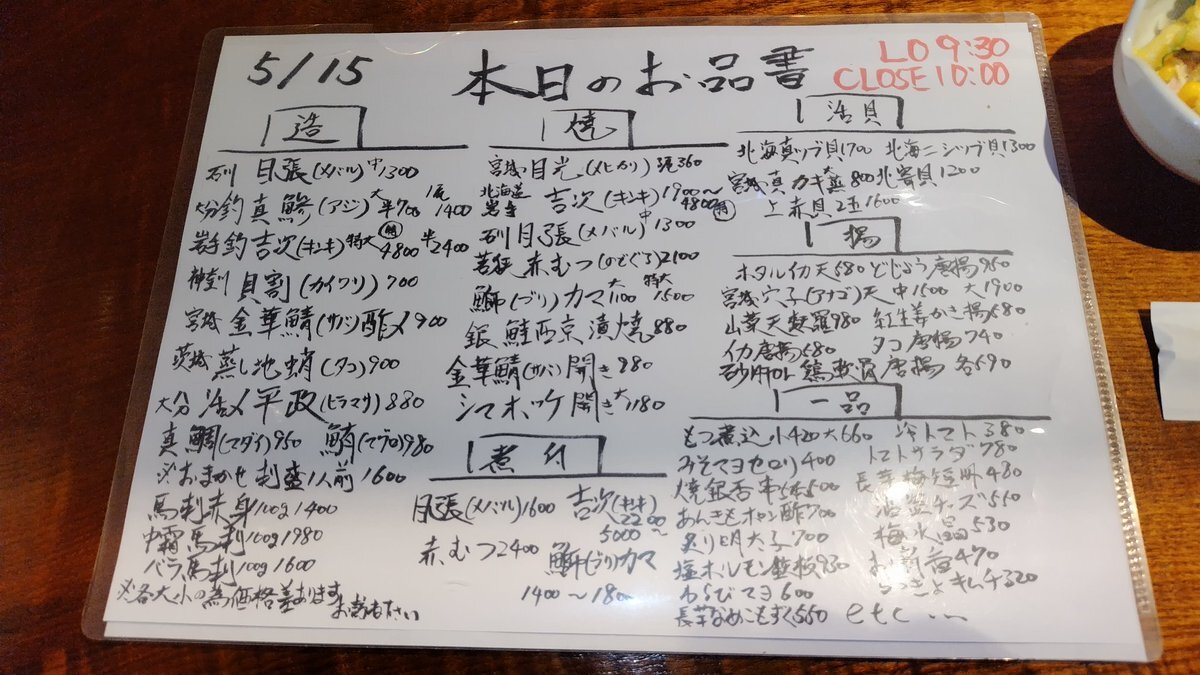 5/15
本日のお品書
LO 9:30
CLOSE 10:00
造
石川 目張(メバル)中1300
大分釣真鯵(アジ)大半700 1尾1400
岩手釣吉次(キンキ)特大 4800 半2400
神奈川 貝割(カイワリ)700
宮城 金華鯖(サバ)酢〆900
茨城 蒸し地蛸(タコ)900
大分 活〆平政(ヒラマサ)880
真鯛(マダイ)950 鮪(マグロ)980
※おまかせ刺盛1人前1600
馬刺赤身100g1400
中霜馬刺100g1980
バラ馬刺100g1600
※各大小の為価格差あります
焼
宮城目光(メヒカリ)1尾360
北海道 岩手 吉次(キンキ)1900〜4800
石川目張(メバル)中1300
若狭 赤むつ(のどぐろ)2100
鰤(ブリ)カマ大1100 特大1500
銀鮭西京漬焼880
金華鯖(サバ)開き880
シマホッケ開き大1180
煮付
目張(メバル)1600 吉次(キンキ)2200〜5000
赤むつ2400 鰤(ブリ)カマ
1400〜1800
活貝
北海真ツブ貝1700 北海ニシツブ貝1300
宮城真カキ大蒸800 北寄貝1200
上赤貝2玉1600
揚
ホタルイカ天580 どじょう唐揚950
宮城穴子(アナゴ)天 中1500 大1900
山菜天麩羅980 紅生姜かき揚680
イカ唐揚680 タコ唐揚740
砂肝or鶏軟骨唐揚 各690
一品
もつ煮込小420大660 冷トマト380
みそマヨセロリ400 トマトサラダ780
焼銀杏串5本500 長芋梅短冊480
あんきもポン酢700 チーズ550
炙り明太子700 梅水晶530
塩ホルモン鉄板930 お新香470
わらびマヨ600 キムチ320
長芋なめこもずく550 etc…